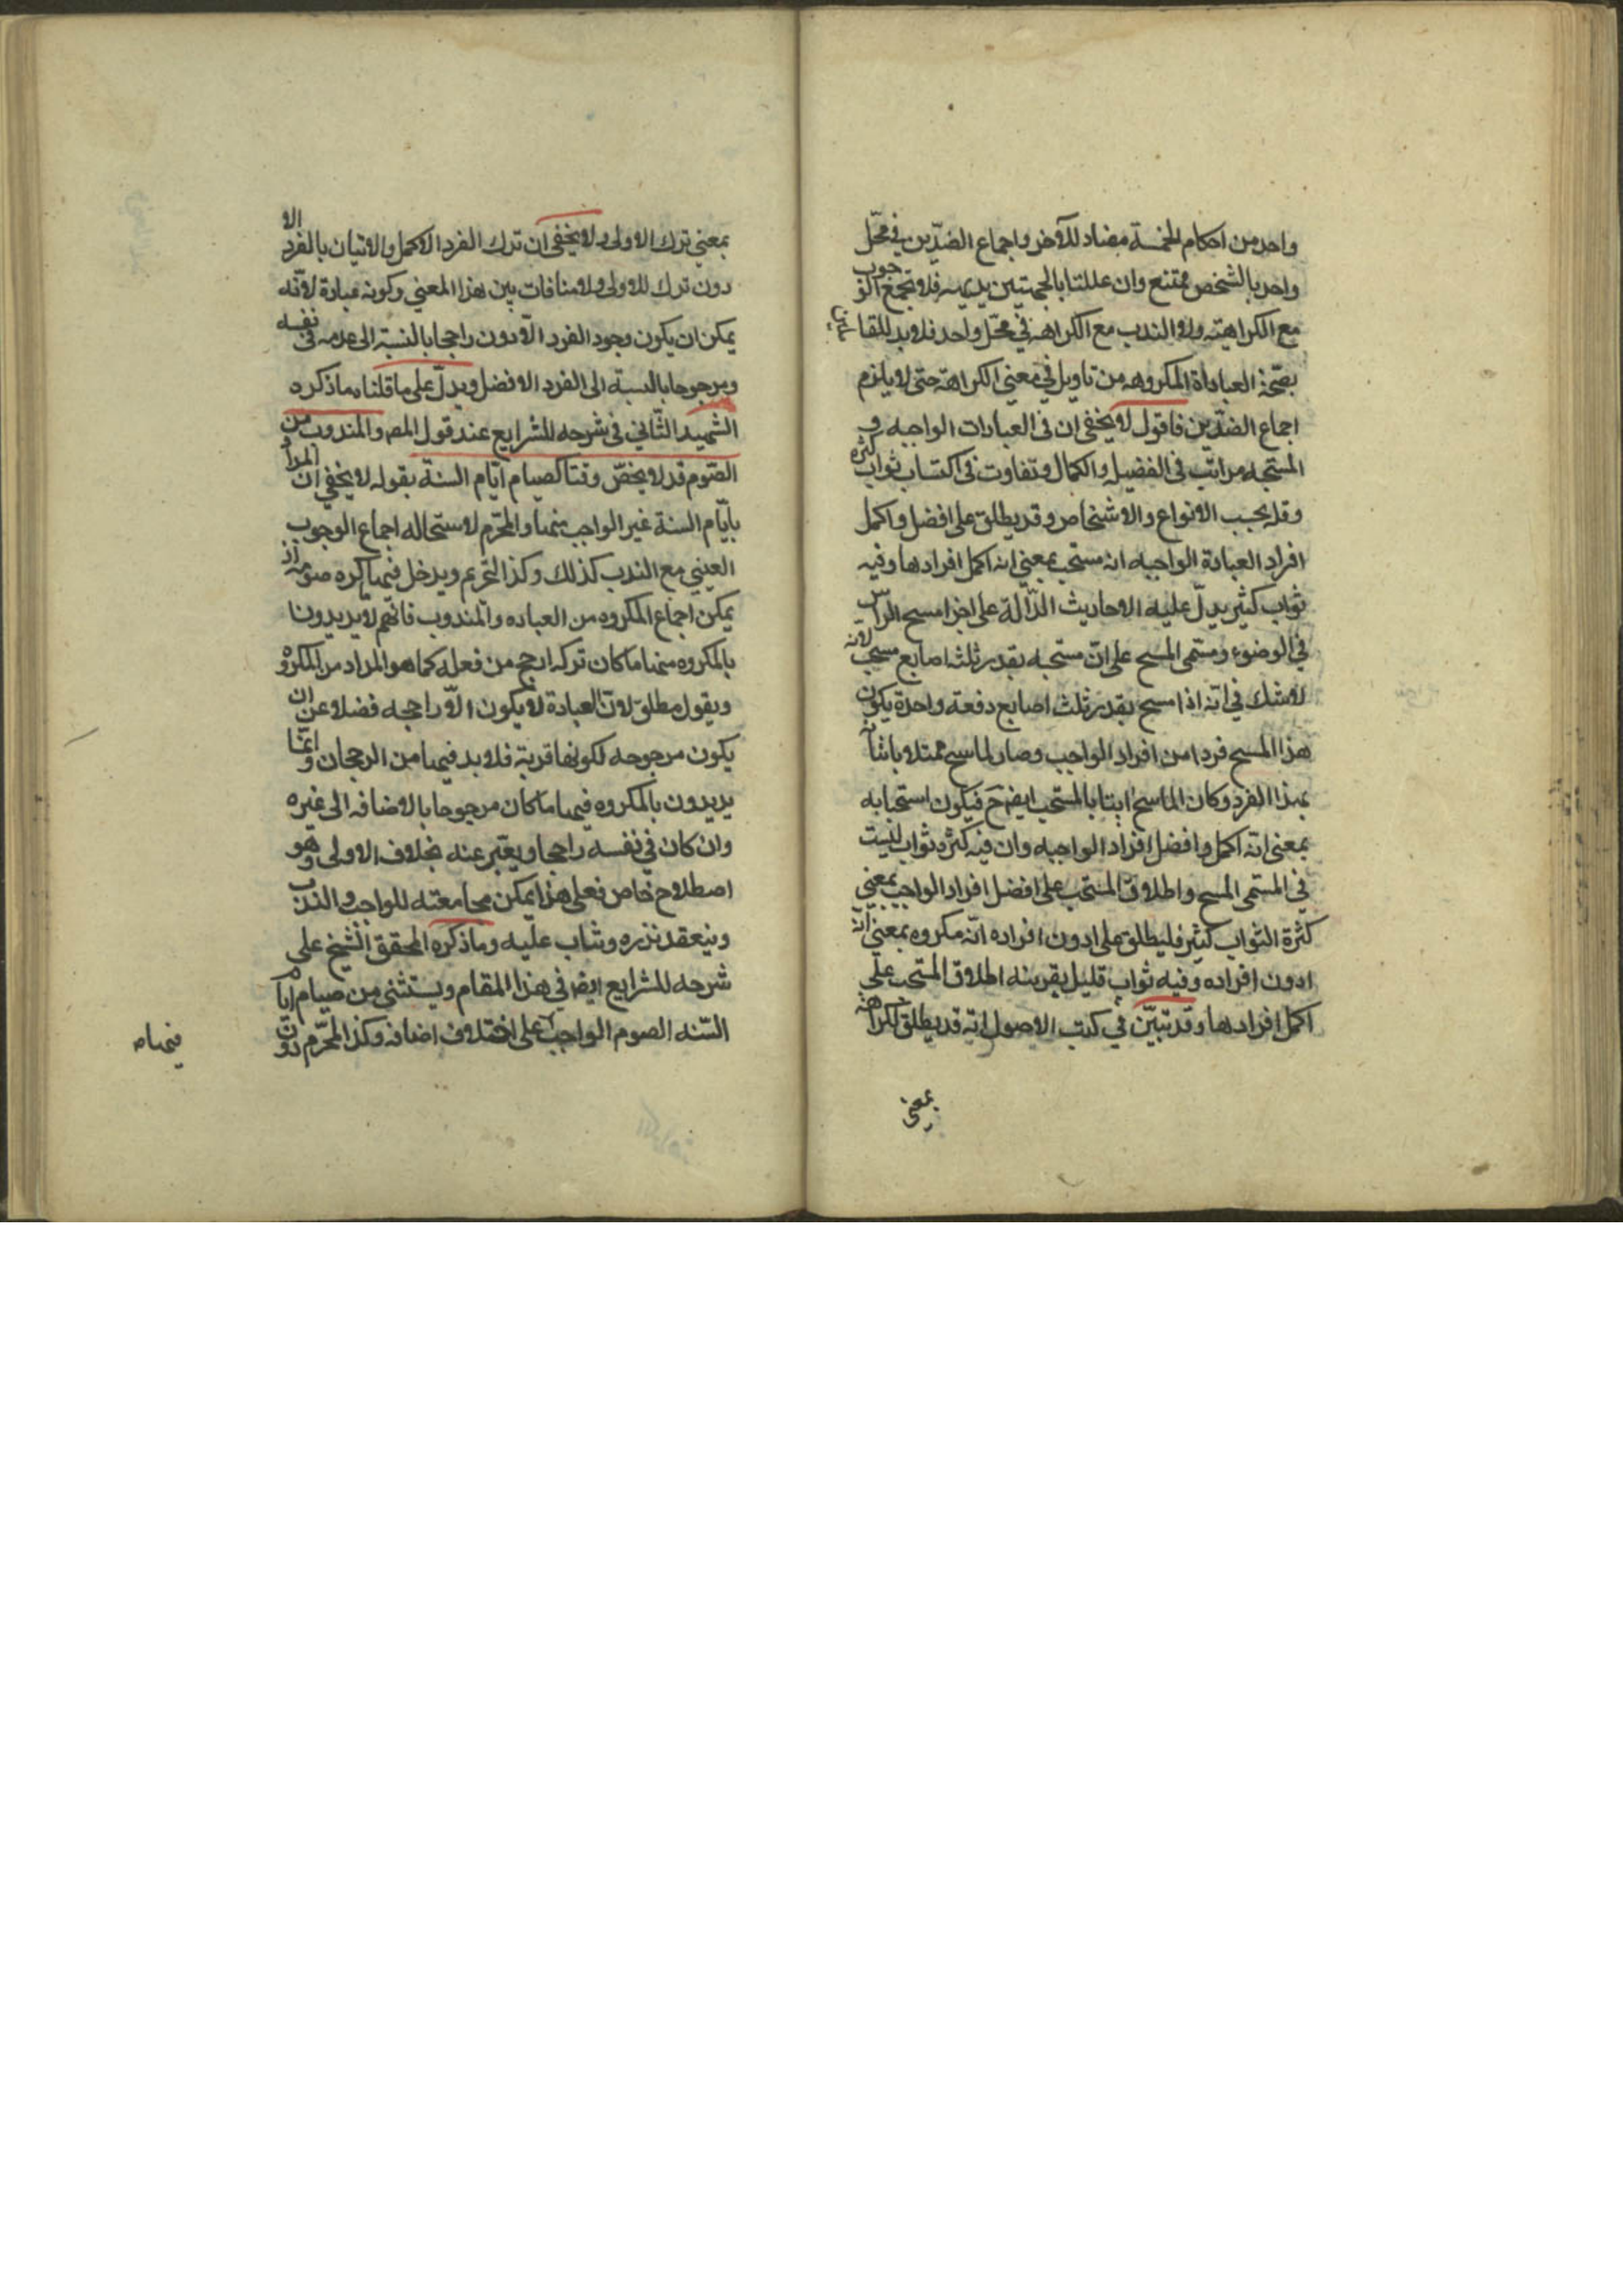 واحد من احكام الخمسة مضاد للآخر واجماع الضدّين في محّل
واحد بالشخص ممتنع وان عللتا بالجهتين بديهيه فلا تجمع الوجوب
مع الكراهته ولا الندب مع الكراهة في محّل واحد فلا بد للقائلين
بصّحة العباداة المكروهه من تاويل في معني الكراهة حتى لا يلزم
اجماع الضدّين فاقول لا يخفي ان في العبادات الواجبه و
المستحبه مراتب في الفضيله والكمال وتفاوت في اكتساب ثواب كثرة
وقله بحسب الانواع والاشخاص وقد يطلق على افضل واكمل
افراد العبادة الواجبه انه مستحب بمعني انه اكمل افرادها وفيه
ثواب كثير يدلّ عليه الاحاديث الدّالة على اجزا مسح الراس
في الوضوء ومسمى المسح على انّ مستحبه بقدر ثلثه اصابع مسحب لانه
لا شك في انه اذا مسح بقدر ثلث اصابع دفعة واحدة يكون
هذا المسح فردا من افراد الواجب وصار الماسح ممتثلا باتيان
بهذا الفرد وكان الماسح اتيا بالمستحب ايضا ح فيكون استحبابه
بمعنى انه اكمل وافضل افراد الواجبه وان فيه كثره ثواب ليست
في المسمى المسح واطلاق المستحب على افضل افراد الواجب بمعني
كثرة الثواب كثير فليطلق على ادون افراده انّه مكروه بمعني انه
ادون افراده وفيه ثواب قليل بقرينه اطلاق المستحب على
اكمل افرادها وقد تبيّن في كتب الاصول انّه قد يطلق الكراهة
بمعنى
بمعني ترك الاولى ولا يخفى ان ترك الفرد الاكمل والاتيان بالفرد الا
دون ترك للاولى ولا منافات بين هذا المعني وكونه عبادة لانّه
يمكن ان يكون وجود الفرد الادون راجحا بالنسبة الى عدمه في نفسه
ومرجوحا بالنسبة الى الفرد الافضل ويدلّ على ما قلناه ما ذكره
الشهيد الثّاني في شرحه للشرايع عند قول المص والمندوب من
الصّوم قد لا يخصّ وقتا كصيام ايّام السنة بقوله لا يخفي ان المراد
بايّام السنة غير الواجب منها والمحّرم لاستحاله اجماع الوجوب
العيني مع الندب كذلك وكذا التحريم ويدخل فيما كره صومه اذ
يمكن اجماع المكروه من العباده والمندوب فانّهم لا يريدون
بالمكروه منها ما كان تركه ارجح من فعله كما هو المراد من المكروه
ويقول مطلق لانّ العبادة لا يكون الّا راجحه فضلا عن ان
يكون مرجوحه لكونها قربة فلا بد فيها من الرجحان وانّما
يريدون بالمكروه فيها ما كان مرجوحا بالاضافه الى غيره
وان كان في نفسه راجحا ويعّبر عنه بخلاف الاولى وهو
اصطلاح خاص فعلى هذا يمكن مجامعته للواجب والندب
وينعقد نذره ويثاب عليه وما ذكره المحقق الشيخ على
شرحه للشرايع ايضا في هذا المقام ويستثني من صيام ايام
السّنه الصوم الواجب على اختلاف اضافه وكذا المحّرم دون
فيما